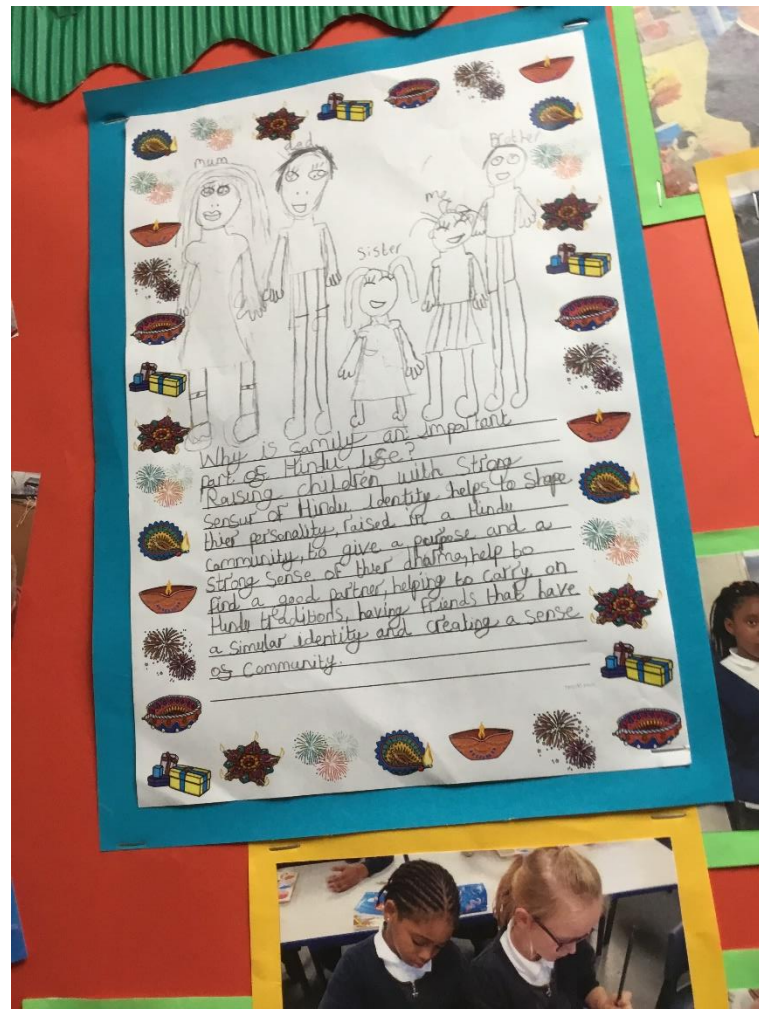 Mum
dad
Sister
me
Brother
Why is family an important
part of Hindu life?
Raising children with Strong
sensur of Hindu Identity helps to shape
thier personality, raised in a Hindu
community, to give a purpose and a
strong sense of thier dharma, help to
find a good partner, helping to carry on
Hindu traditions, having friends that have
a simular identity and creating a sense
of community.